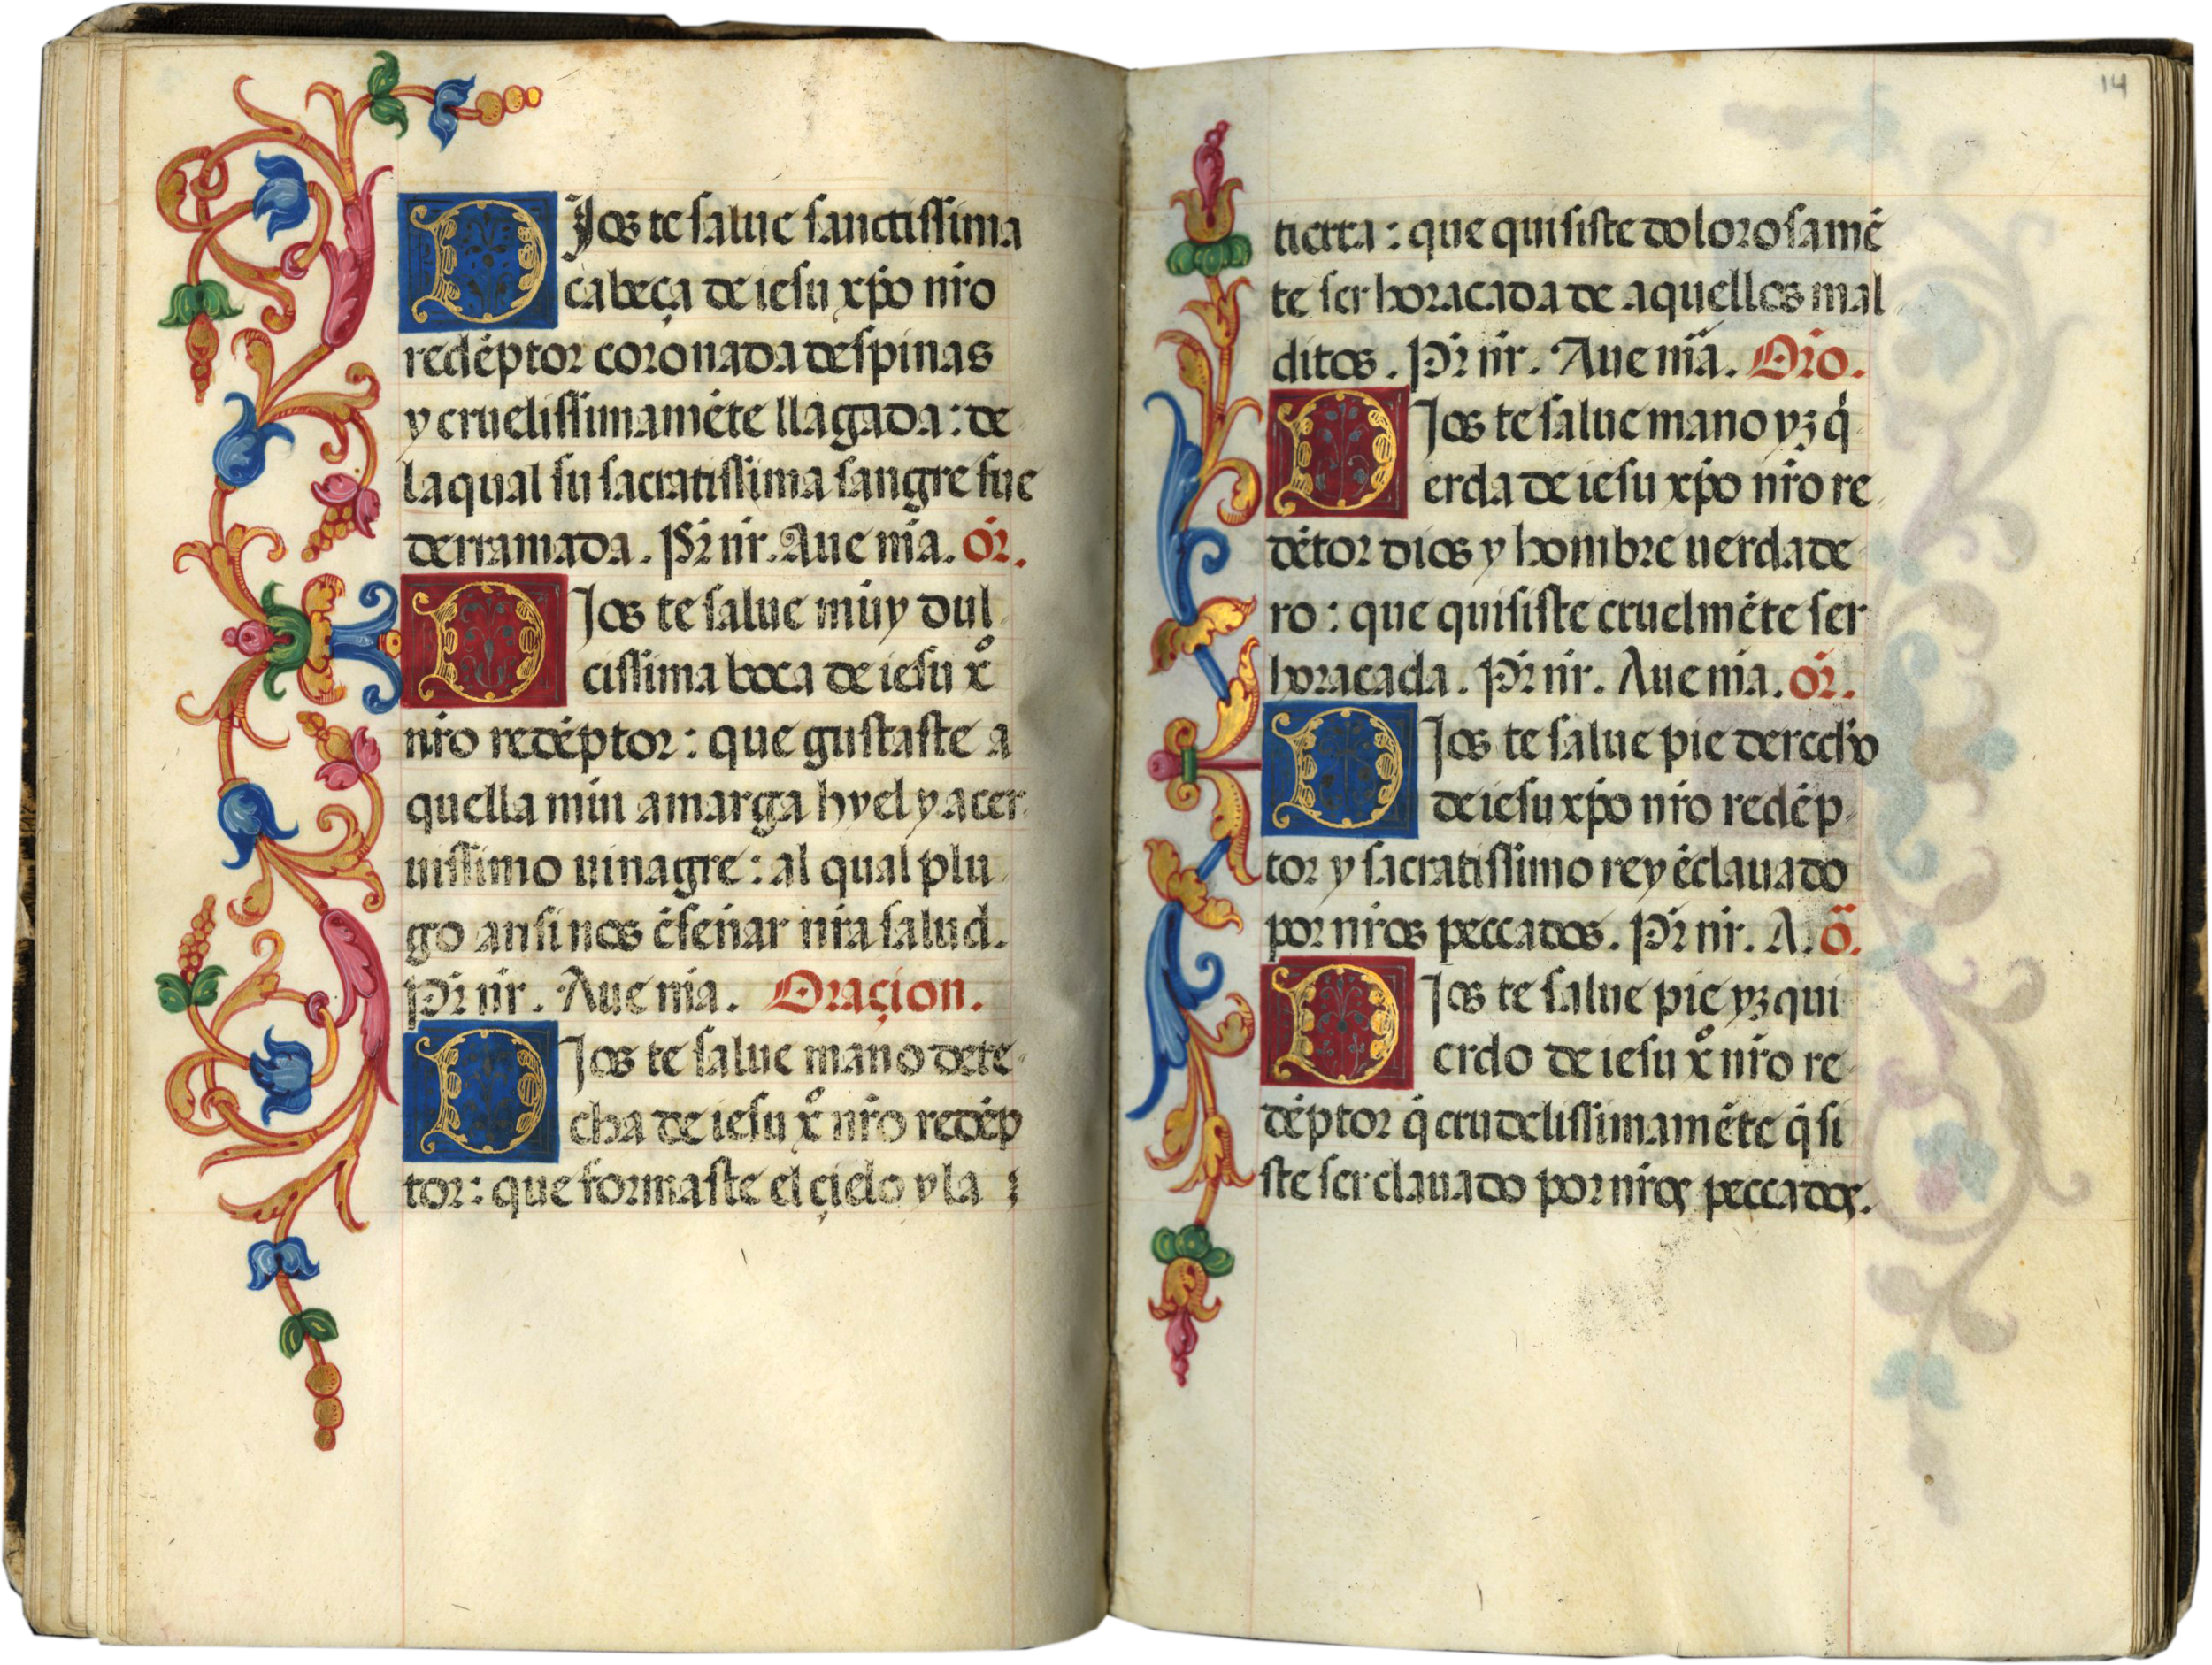 DJos te salue sanctissima
cabeça de iesu xp̃o nr̃o
redẽptor coronada despinas
y cruelissimamẽte llagada: de
la qual su sacratissima sangre fue
derramada. Pr̃ nr̃. Aue mã. Or̃.
DJos te salue muy dul
cissima boca de iesu xº
nr̃o redẽptor: que gustaste a
quella mui amarga hyel y acer
uissimo uinagre: al qual plu
go ansi nos ẽseñar nr̃a salud.
Pr̃ nr̃. Aue mã. Oraçion.
DJos te salue mano dere
cha de iesu xº nr̃o redẽp
tor: que formaste el çielo y la
14
tierra: que quisiste dolorosamẽ
te ser horacada de aquellos mal
ditos. Pr̃ nr̃. Aue mã. Orõ.
DJos te salue mano yzq̃
erda de iesu xp̃o nr̃o re
dẽtor dios y hombre uerdade
ro: que quisiste cruelmẽte ser
horacada. Pr̃ nr̃. Aue mã. or̃.
DJos te salue pie derecho
de iesu xp̃o nr̃o redẽp
tor y sacratissimo rey ẽclauado
por nr̃os peccados. Pr̃ nr̃. A. õ.
DJos te salue pie yzqui
erdo de iesu xº nr̃o re
dẽptor q̃ crudelissimamẽte q̃si
ste ser clauado por nr̃os peccados.